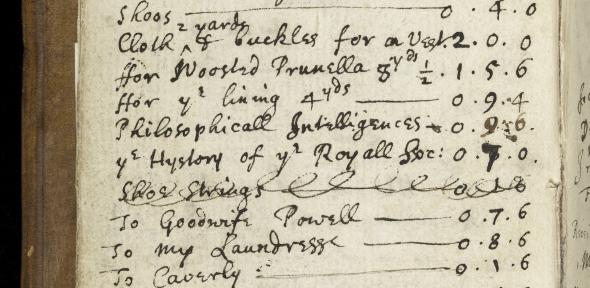 Shoos 0 . 4 . 0
Cloth 2 yards & buckles for a Vest. 2 . 0 . 0
ffor Woosted Prunella 8 yds ½ . 1 . 5 . 6
ffor yᵉ lining 4 yds 0 . 9 . 4
Philosophicall Intelligences 0 . 9 . 6.
yᵉ Hystory of yᵉ Royall Soc: 0 . 7 . 0.
Shoe strings 0 1 8
To Goodwife Powell 0 . 7 . 6
To my Laundresse 0 . 8 . 6
To Caverly 0 . 1 . 6